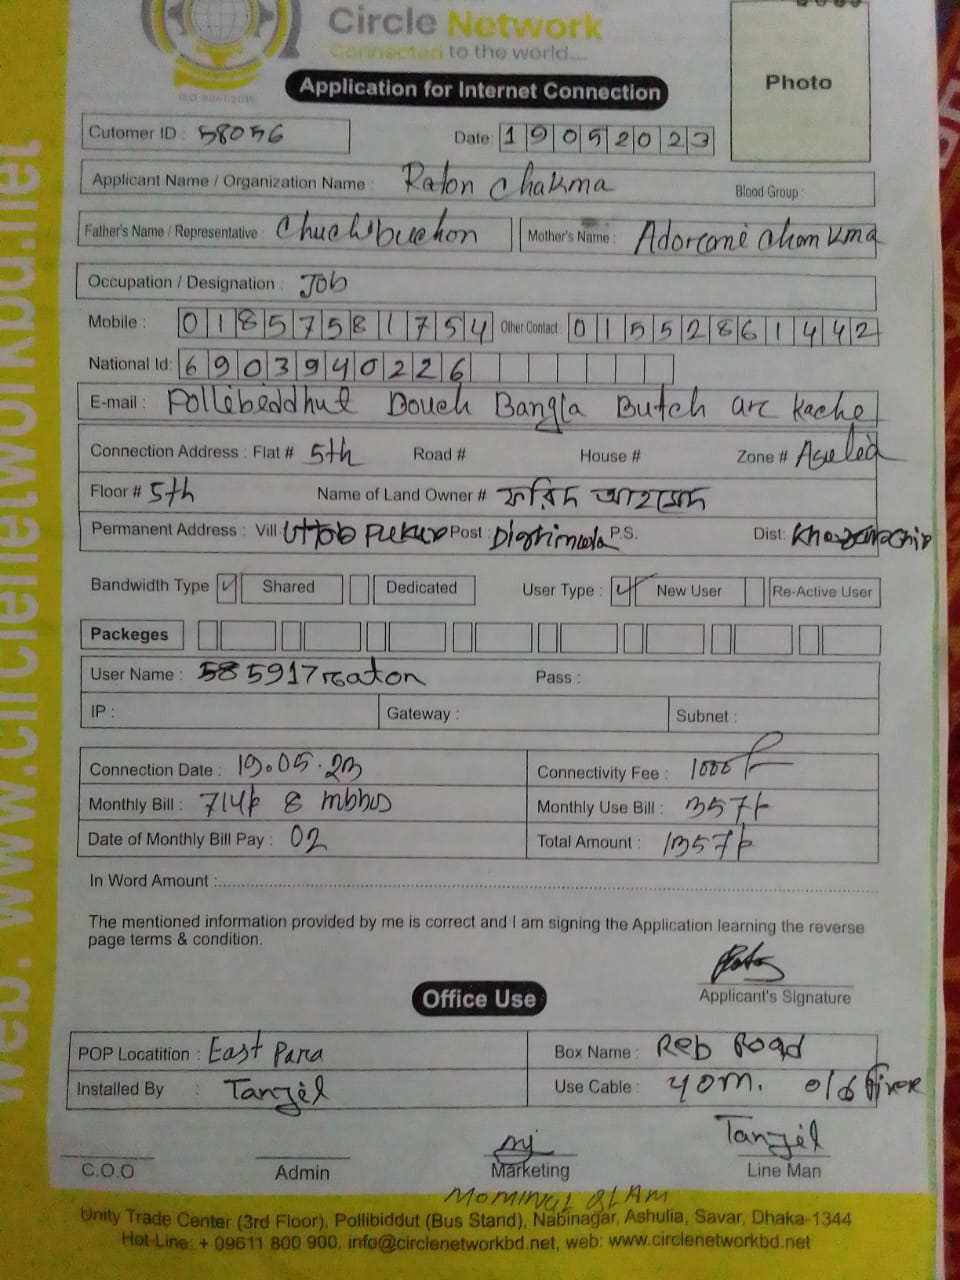 Circle Network
Connected to the world.....
Application for Internet Connection
Photo
Cutomer ID : 58056
Date: 19052023
Applicant Name / Organization Name : Raton Chakma
Blood Group :
Father's Name / Representative :
Mother's Name :
Occupation / Designation : Job
Mobile : 01857581754
Other Contact : 01552861442
National Id: 6903940226
E-mail : Pollibiddhut Douch Bangla Butch arc kache
Connection Address : Flat # 5th Road # House # Zone #
Floor # 5th Name of Land Owner # ফরিদ আহমেদ
Permanent Address : Vill Post : P.S. Dist:
Bandwidth Type Shared Dedicated User Type : New User Re-Active User
Packeges
User Name : 585917raton Pass :
IP : Gateway : Subnet :
Connection Date : 19.05.23
Connectivity Fee : 1000
Monthly Bill : 714 8 mbbs
Monthly Use Bill : 357
Date of Monthly Bill Pay : 02
Total Amount : 1357
In Word Amount :
The mentioned information provided by me is correct and I am signing the Application learning the reverse
page terms & condition.
Applicant's Signature
Office Use
POP Locatition : East Para
Box Name : Reb Road
Installed By : Tanzil
Use Cable : 40m. old
Tanzil
C.O.O Admin Marketing Line Man
Unity Trade Center (3rd Floor), Pollibiddut (Bus Stand), Nabinagar, Ashulia, Savar, Dhaka-1344
Hot-Line: + 09611 800 900, info@circlenetworkbd.net, web: www.circlenetworkbd.net
web: www.circlenetworkbd.net